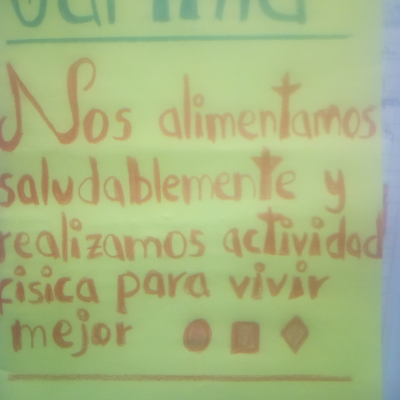 Nos alimentamos
saludablemente y
realizamos actividad
fisica para vivir
mejor